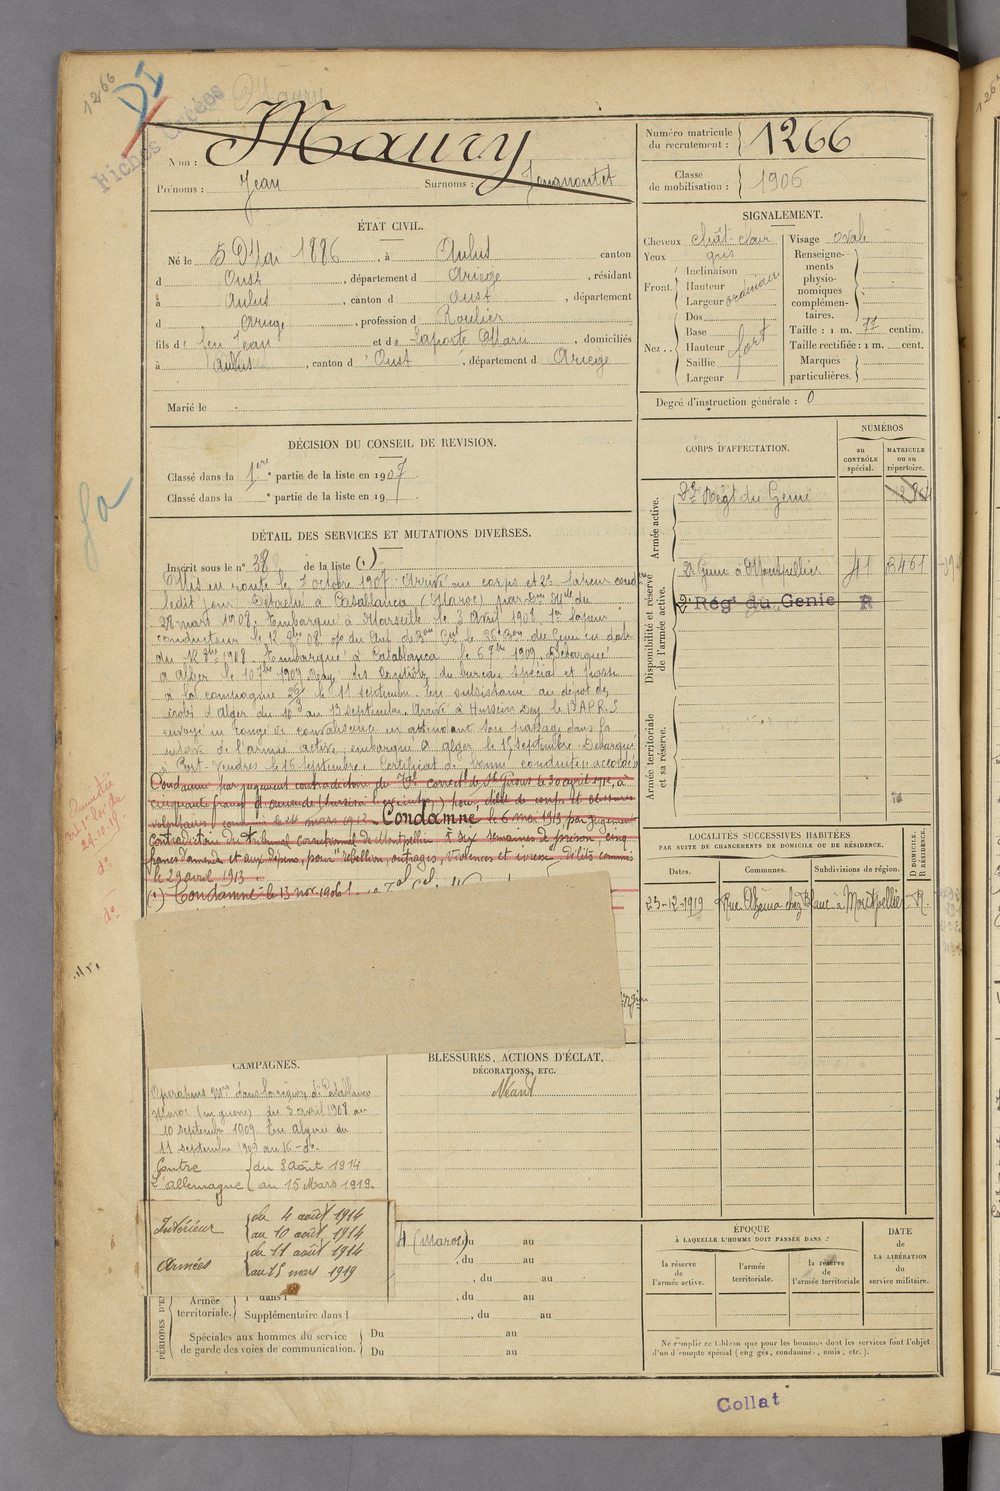 1266
DI
Fiches Créées
Maury
Nom : Maury
Prénoms : Jean Surnoms : Jouanoutet
Numéro matricule
du recrutement : 1266
Classe
de mobilisation : 1906
ÉTAT CIVIL.
Né le 5 Mai 1886, à Aulus canton
d Oust, département d Ariège, résidant
à Aulus, canton d Oust, département
d Ariège, profession d Roulier
fils d feu Jean et d e Laporte Marie, domiciliés
à Aulus, canton d Oust, département d Ariège
Marié le
SIGNALEMENT.
Cheveux chât-clair Visage ovale
Yeux gris
Front. Inclinaison
Hauteur
Largeur ordinaire
Nez .. Dos
Base
Hauteur fort
Saillie
Largeur
Renseigne-
ments
physio-
nomiques
complémen-
taires.
Taille : 1 m. 77 centim.
Taille rectifiée : 1 m. cent.
Marques
particulières.
Degré d'instruction générale : 0
DÉCISION DU CONSEIL DE REVISION.
Classé dans la 1ere partie de la liste en 1907.
Classé dans la ° partie de la liste en 19
DÉTAIL DES SERVICES ET MUTATIONS DIVERSES.
Inscrit sous le n° 38 de la liste (1)
Mis en route le 7 octobre 1907. Arrivé au corps et 2e sapeur cond
ledit jour. Détaché à Casablanca (Maroc) par Don Mlle du
28 mars 1908. Embarqué à Marseille le 3 avril 1908. 1er sapeur
conducteur le 12 8bre 08.
du 12 8bre 1908. Embarqué à Casablanca le 6 7bre 1909. Débarqué
à Alger le 10 7bre 1909. Rayé des contrôles du bureau spécial et passé
à la compagnie le 11 septembre. En subsistance au dépôt des
isolés d'Alger du 10 au 13 septembre. Arrivé à Hussein Dey le 13
envoyé en congé de convalescence en attendant son passage dans la
réserve de l'armée active, embarqué à Alger le 15 septembre Débarqué
à Port-Vendres le 16 septembre. Certificat de bonne conduite accordé.
Condamné par jugement contradictoire du Tal correctl de St Girons le 30 avril 1912, à
cinquante francs d'amende pour délit de coups et blessures
volontaires mars 1912 - Condamné le 6 mai 1913, par jugement
contradictoire du tribunal correctionnel de Montpellier à six semaines de prison, cinq
francs d'amende et aux dépens, pour rébellion, outrages, violences et ivresse. Délits commis
le 29 avril 1913.
(1) Condamné le 13 nov. 1906
CORPS D'AFFECTATION.
NUMÉROS
au
CONTRÔLE
spécial.
MATRICULE
ou au
répertoire.
Armée active.
2e Régt du Génie
Disponibilité et réserve
de l'armée active.
2e Génie à Montpellier 41
2e Régt du Génie R
Armée territoriale
et sa réserve.
LOCALITÉS SUCCESSIVES HABITÉES
PAR SUITE DE CHANGEMENTS DE DOMICILE OU DE RÉSIDENCE.
Dates. Communes. Subdivisions de région. D DOMICILE. R RÉSIDENCE.
23-12-1919 Rue Azéma chez Blanc à Montpellier R.
CAMPAGNES.
Opérations mres dans la région de Casablanca
Maroc (en guerre) du 3 avril 1908 au
10 septembre 1909. En Algérie du
11 septembre 1909 au 16 - do -
Contre du 3 Août 1914
L'allemagne au 15 Mars 1919.
Intérieur du 4 août 1914
au 10 août 1914
Armées du 11 août 1914
au 15 mars 1919
BLESSURES, ACTIONS D'ÉCLAT,
DÉCORATIONS, ETC.
Néant
(Maroc) du au
, du au
, du au
, du au
Armée
territoriale. 1° dans l
Supplémentaire dans l , du au
Spéciales aux hommes du service
de garde des voies de communication.
Du au
Du au
ÉPOQUE
À LAQUELLE L'HOMME DOIT PASSER DANS :
la réserve
de
l'armée active.
l'armée
territoriale.
la réserve
de
l'armée territoriale
DATE
de
LA LIBÉRATION
du
service militaire.
Ne remplir ce tableau que pour les hommes dont les services font l'objet
d'un décompte spécial (engagés, condamnés, omis, etc.).
Collat